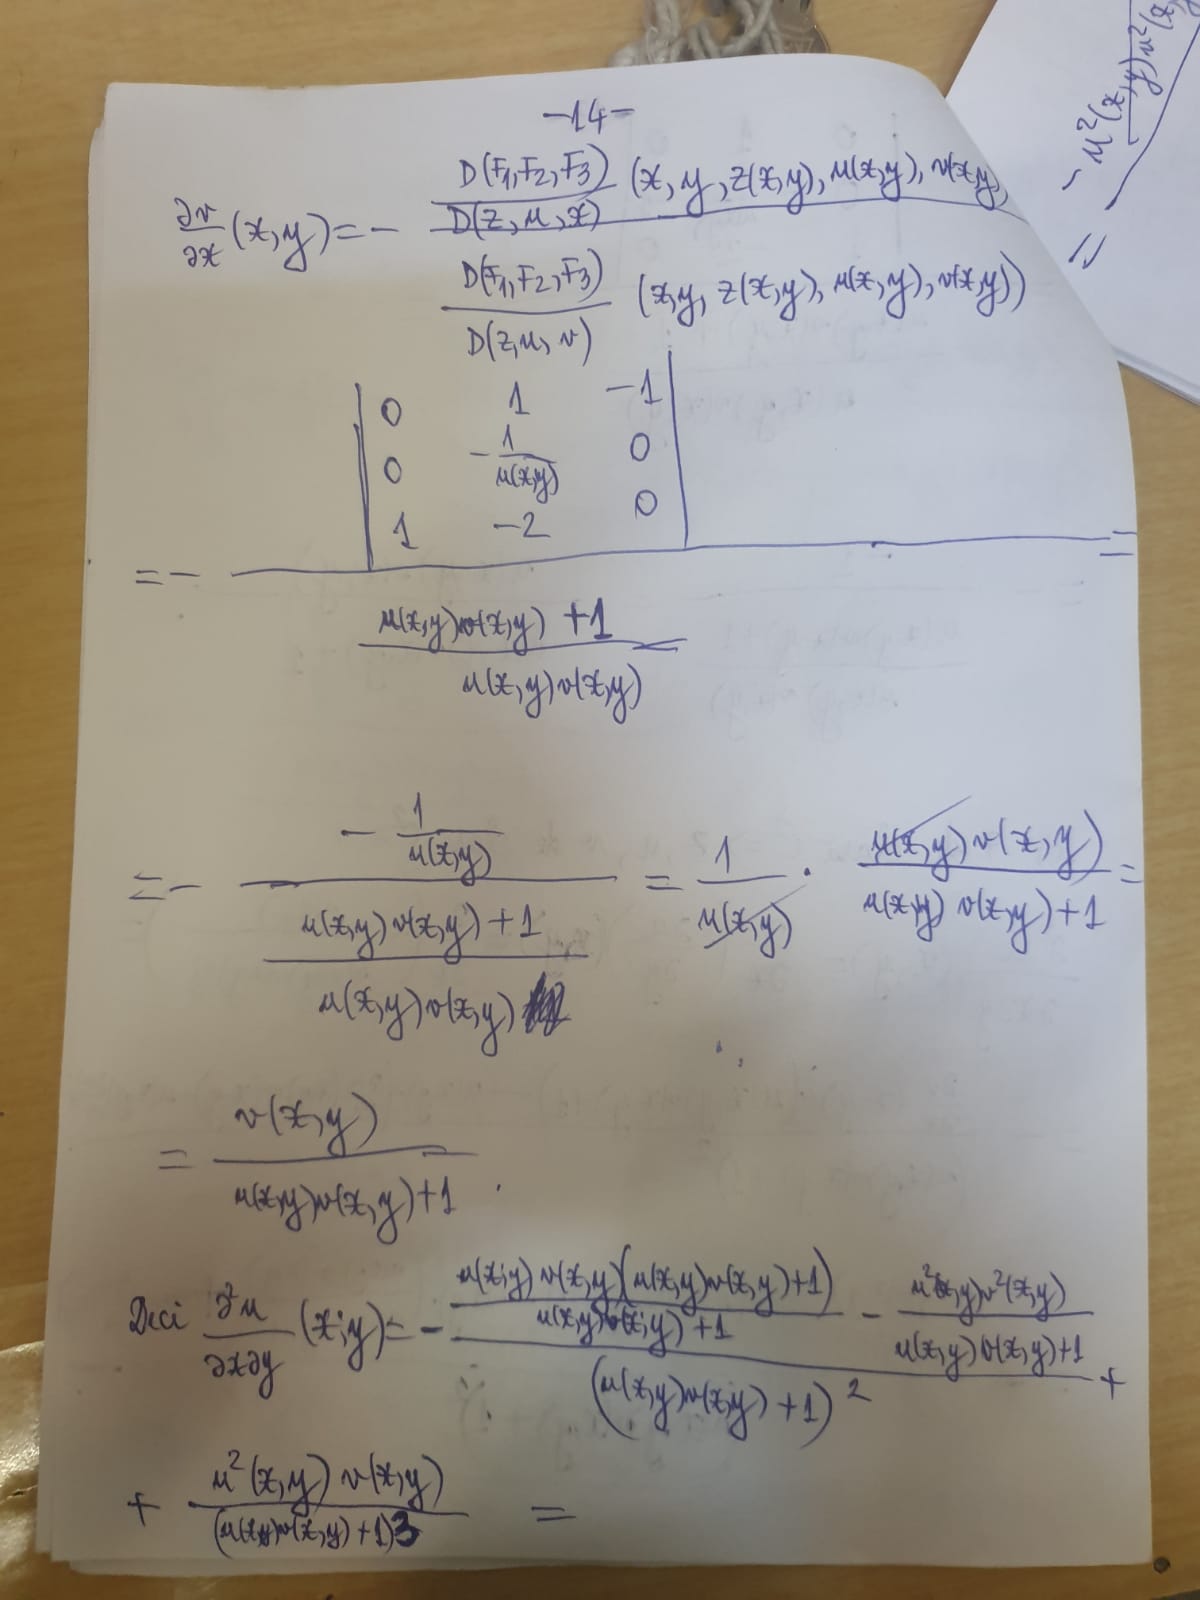 -14-
∂v/∂x (x,y) = - D(F1,F2,F3)/D(z,u,x) (x,y,z(x,y),u(x,y),v(x,y)
D(F1,F2,F3)/D(z,u,v) (x,y,z(x,y),u(x,y),v(x,y))
0 1 -1
0 -1/u(x,y) 0
1 -2 0
= - =
u(x,y)v(x,y)+1
u(x,y)v(x,y)
= - (-1/u(x,y)) / ((u(x,y)v(x,y)+1)/(u(x,y)v(x,y))) = 1/u(x,y) · u(x,y)v(x,y)/(u(x,y)v(x,y)+1) =
= v(x,y)/(u(x,y)v(x,y)+1).
Deci ∂²u/∂x∂y (x;y) = - (u(x;y)v(x,y)(u(x,y)v(x,y)+1)/(u(x,y)v(x;y)+1) - u²(x,y)v²(x,y)/(u(x,y)v(x,y)+1)) / (u(x,y)v(x,y)+1)² +
+ u²(x,y)v(x,y)/(u(x,y)v(x,y)+1)3 =
= -u²(x,y)v²(x,